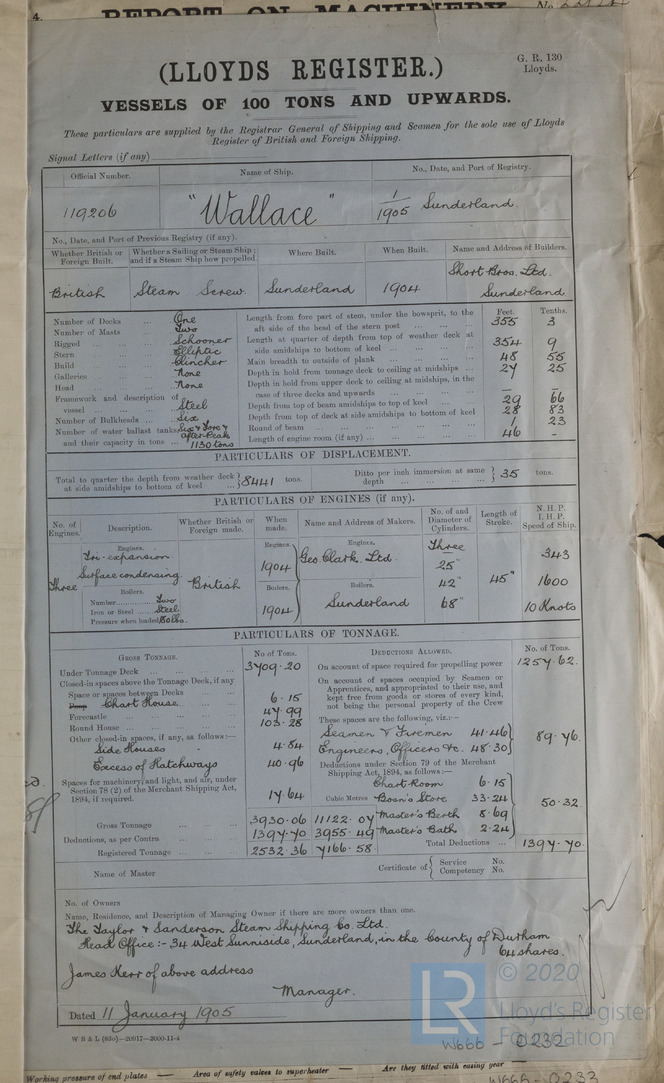 4. REPORT ON MACHINERY No.
(LLOYDS REGISTER.)
G. R. 130
Lloyds.
VESSELS OF 100 TONS AND UPWARDS.
These particulars are supplied by the Registrar General of Shipping and Seamen for the sole use of Lloyds
Register of British and Foreign Shipping.
Signal Letters (if any)
Official Number. Name of Ship. No., Date, and Port of Registry.
119206 "Wallace" 1/1905 Sunderland.
No., Date, and Port of Previous Registry (if any).
Whether British or Foreign Built. Whether a Sailing or Steam Ship; and if a Steam Ship how propelled. Where Built. When Built. Name and Address of Builders.
British Steam Screw. Sunderland 1904 Short Bros. Ltd. Sunderland
Feet. Tenths.
Number of Decks ... One
Number of Masts ... Two
Rigged ... Schooner
Stern ... Elliptic
Build ... Clincher
Galleries ... None
Head ... None
Framework and description of vessel ... Steel
Number of Bulkheads ... Six
Number of water ballast tanks, and their capacity in tons ... Six & Fore & After Peak 1130 tons
Length from fore part of stem, under the bowsprit, to the aft side of the head of the stern post ... 355 3
Length at quarter of depth from top of weather deck at side amidships to bottom of keel ... 354 9
Main breadth to outside of plank ... 48 55
Depth in hold from tonnage deck to ceiling at midships ... 27 25
Depth in hold from upper deck to ceiling at midships, in the case of three decks and upwards ... — —
Depth from top of beam amidships to top of keel ... 29 66
Depth from top of deck at side amidships to bottom of keel 28 83
Round of beam ... 1 23
Length of engine room (if any) ... 46 -
PARTICULARS OF DISPLACEMENT.
Total to quarter the depth from weather deck at side amidships to bottom of keel ... 8441 tons. Ditto per inch immersion at same depth ... 35 tons.
PARTICULARS OF ENGINES (if any).
No. of Engines. Description. Whether British or Foreign made. When made. Name and Address of Makers. No. of and Diameter of Cylinders. Length of Stroke. N. H. P. I. H. P. Speed of Ship.
Engines. Engines. Engines.
Three Tri-expansion Surface condensing British 1904 Geo. Clark. Ltd Three 25" 42" 68" 45" 343 1600 10 Knots
Boilers. Boilers. Boilers.
Number ... Two
Iron or Steel ... Steel
Pressure when loaded 180 lbs.
1904 Sunderland
PARTICULARS OF TONNAGE.
GROSS TONNAGE. No of Tons.
Under Tonnage Deck ... 3709.20
Closed-in spaces above the Tonnage Deck, if any
Space or spaces between Decks ...
Poop Chart House ... 6.15
Forecastle ... 47.99
Round House ... 103.28
Other closed-in spaces, if any, as follows:—
Side Houses - 4.84
Excess of Hatchways 40.96
Spaces for machinery, and light, and air, under Section 78 (2) of the Merchant Shipping Act, 1894, if required. 17.64
Gross Tonnage ... 3930.06
Deductions, as per Contra ... 1397.70
Registered Tonnage ... 2532.36
Cubic Metres
11122.07
3955.49
7166.58
DEDUCTIONS ALLOWED. No. of Tons.
On account of space required for propelling power 1257.62.
On account of spaces occupied by Seamen or Apprentices, and appropriated to their use, and kept free from goods or stores of every kind, not being the personal property of the Crew
These spaces are the following, viz.:—
Seamen & Firemen 41.46
Engineers, Officers &c. 48.30
89.76.
Deductions under Section 79 of the Merchant Shipping Act, 1894, as follows:—
Chart Room 6.15
Bosn's Store 33.24
Master's Berth 8.69
Master's Bath 2.24
50.32
Total Deductions ... 1397.70.
Name of Master Certificate of { Service No. Competency No.
No. of Owners
Name, Residence, and Description of Managing Owner if there are more owners than one.
The Taylor & Sanderson Steam Shipping Co. Ltd.
Head Office :- 34 West Sunniside, Sunderland, in the County of Durham
64 shares.
James Kerr of above address
Manager.
Dated 11 January 1905
W B & L (85o)—20917—2000-11-4
LR © 2020
Lloyd's Register
Foundation
W666 - 0232
Working pressure of end plates — Area of safety valves to superheater — Are they fitted with easing gear
W666 - 0233